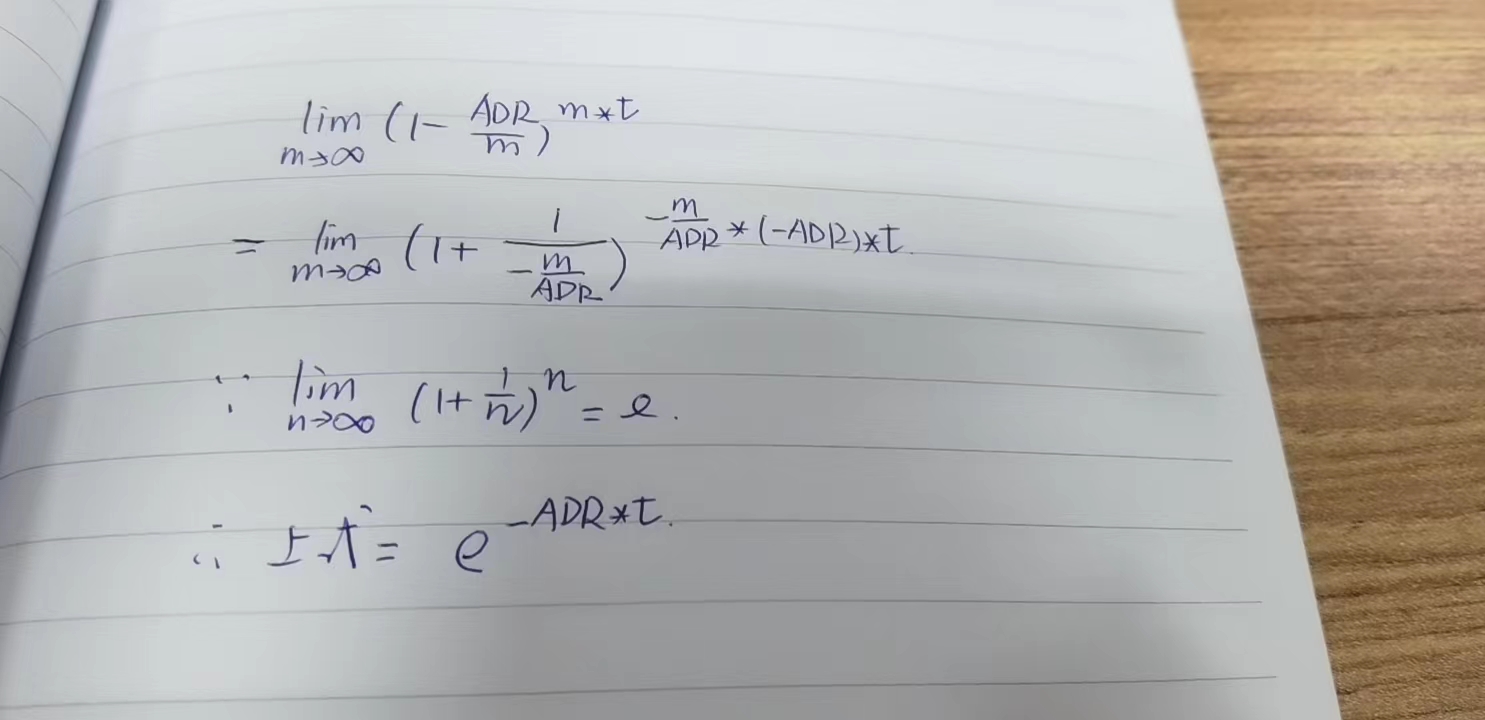 lim m→∞ (1 - ADR/m)^(m*t)
= lim m→∞ (1 + 1/(-m/ADR))^(-m/ADR * (-ADR)*t).
∵ lim n→∞ (1 + 1/n)^n = e.
∴ 上式 = e^(-ADR*t).